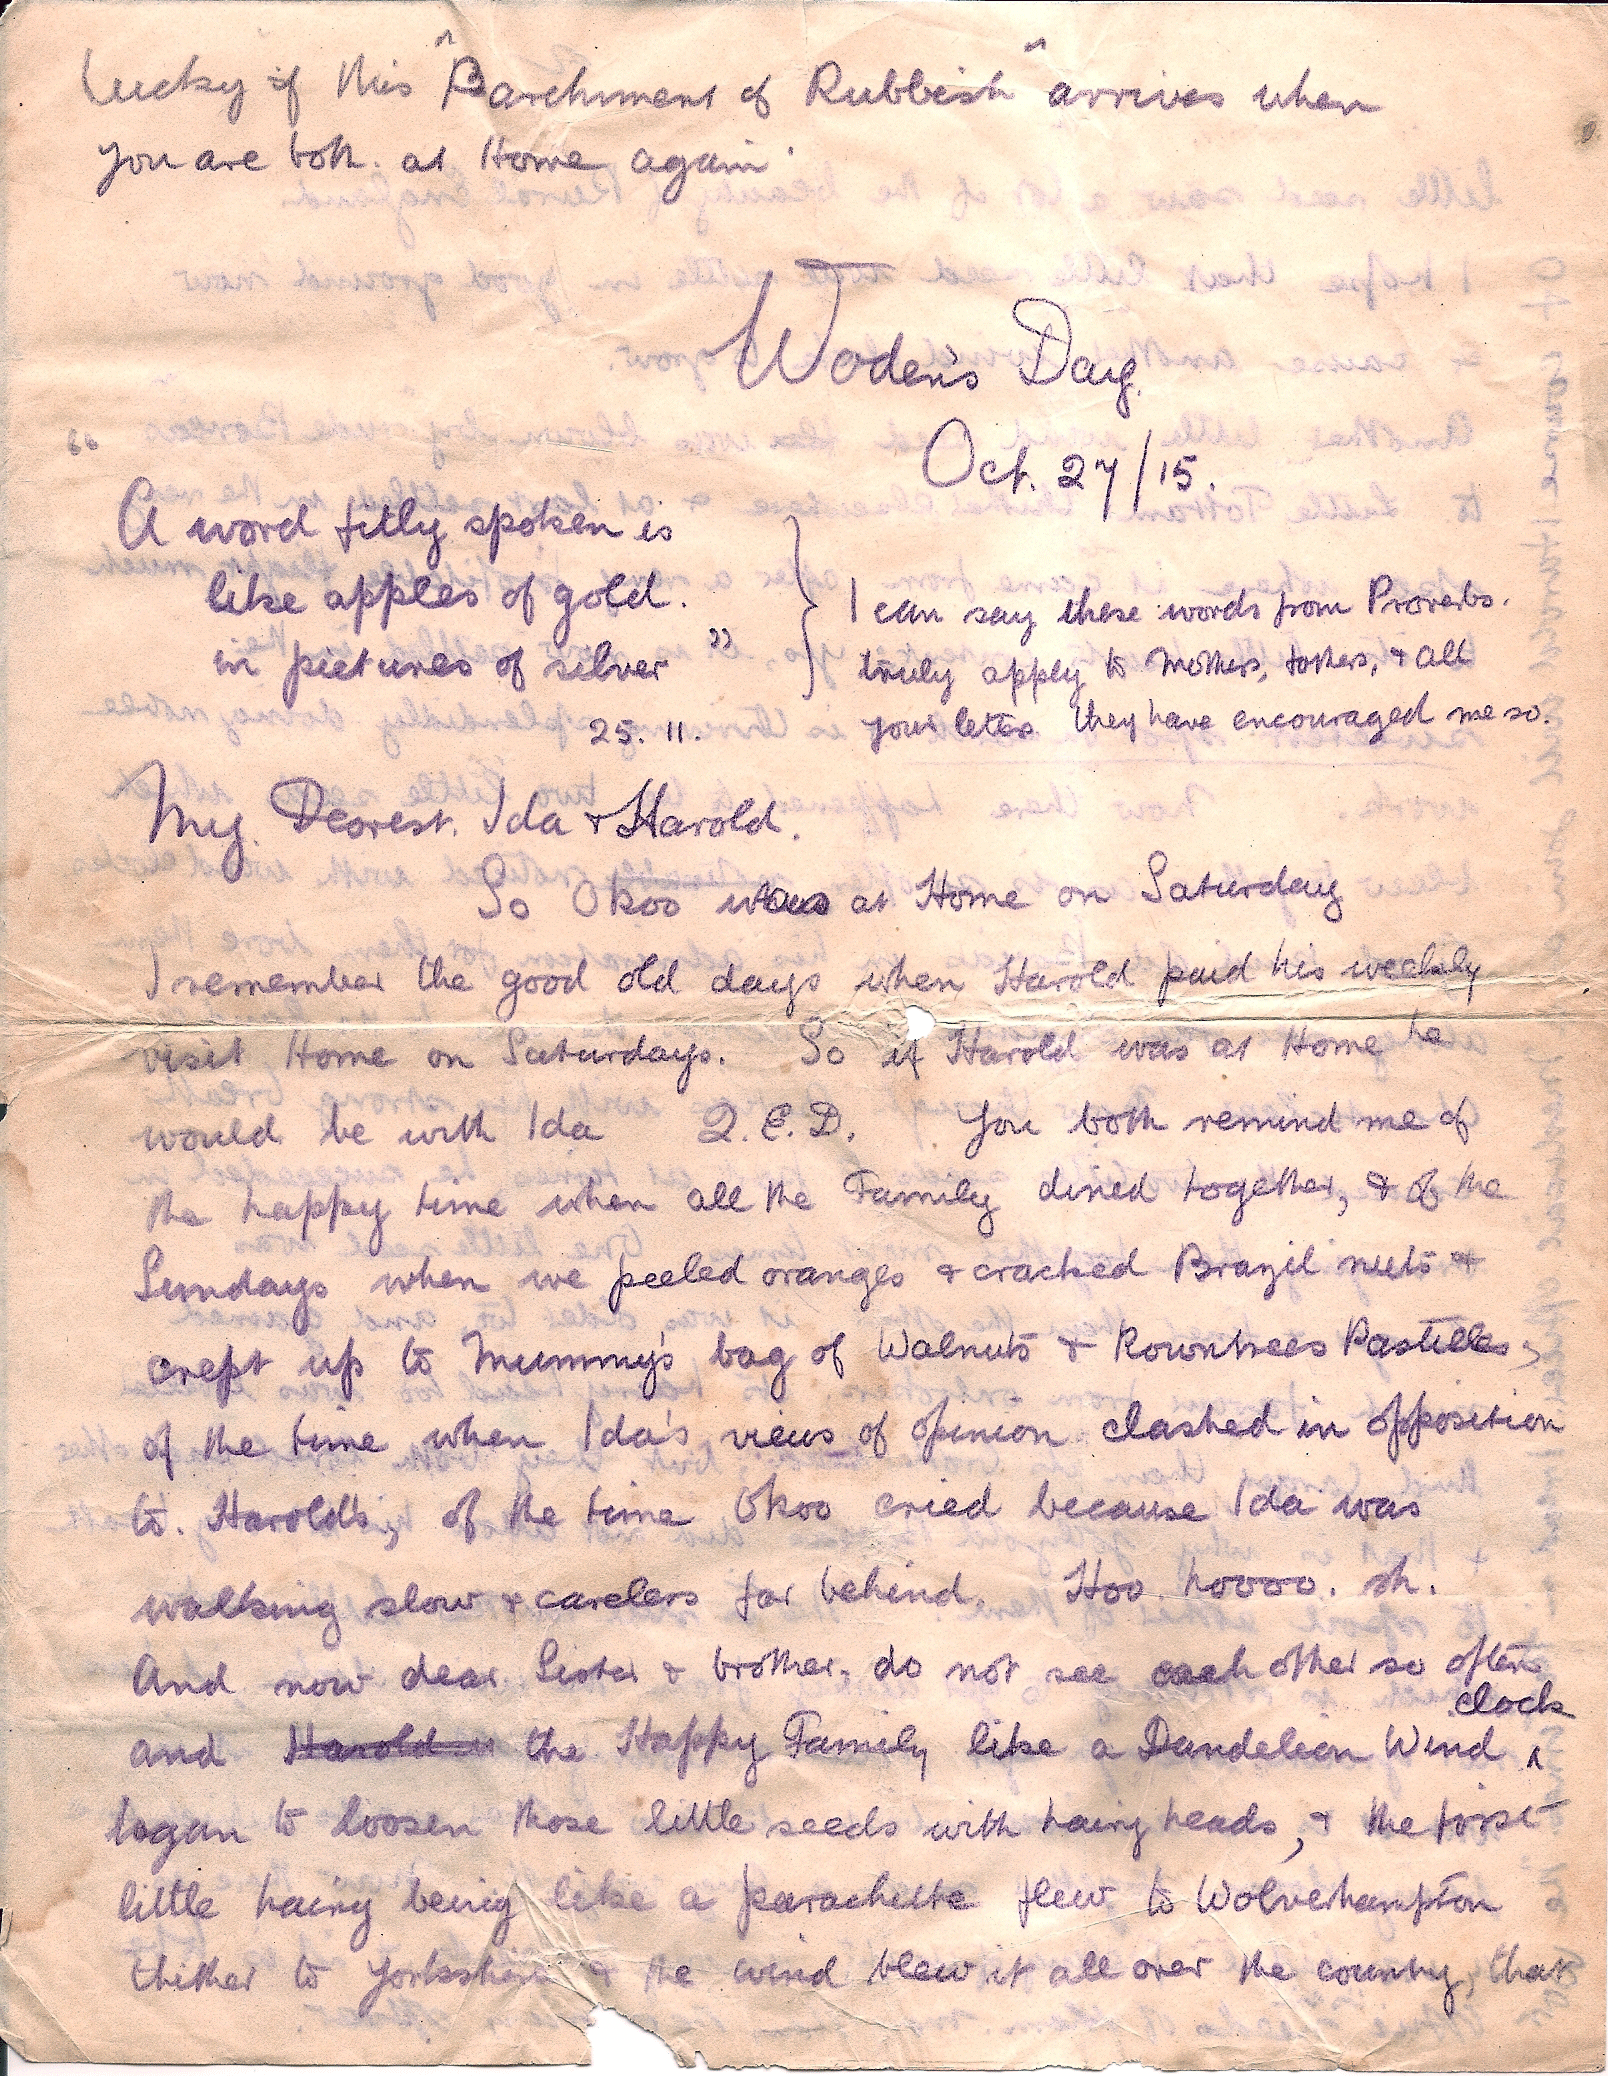 Lucky if this "Parchment of Rubbish" arrives when
you are both. at Home again.
Woden's Day.
Oct. 27/15.
"A word fitly spoken is
like apples of gold.
in pictures of silver"
25. 11.
I can say these words from Proverbs.
truly apply to Mothers, fathers, & all
your letes they have encouraged me so.
My. Dearest. Ida & Harold.
So Okoo was at Home on Saturday
I remember the good old days when Harold paid his weekly
visit Home on Saturdays. So if Harold was at Home he
would be with Ida Q.E.D. You both remind me of
the happy time when all the Family dined together, & of the
Sundays when we peeled oranges & cracked Brazil nuts &
crept up to Mummy's bag of Walnuts & Rowntrees Pastilles,
of the time when Ida's views of opinion clashed in opposition
to. Harold's, of the time Okoo cried because Ida was
walking slow & careless far behind. Hoo hoooo. sh.
And now dear Sister & brother, do not see each other so often
and Harold the Happy Family like a Dandelion Wind ^ clock
began to loosen those little seeds with hairy heads, & the first
little hairy being like a parachute flew to Wolverhampton
thither to Yorkshire & the wind blew it all over the country, that